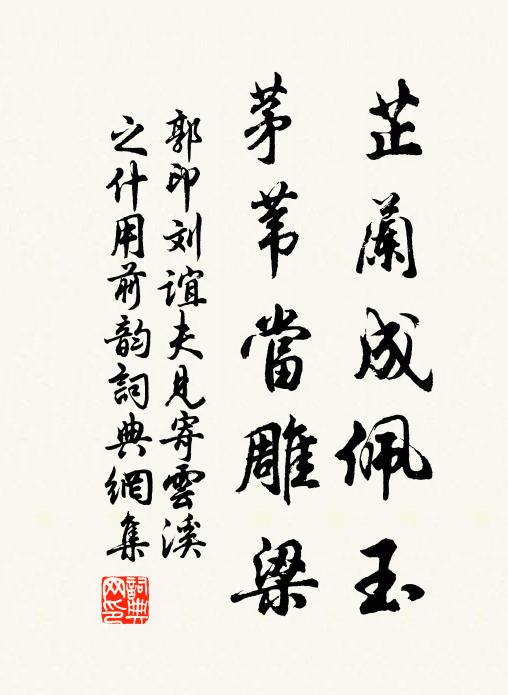 芷蘭成佩玉
茅苇當雕梁
郭印刘谊夫見寄雲溪
之什用前韵詞典網集
詞典
网印